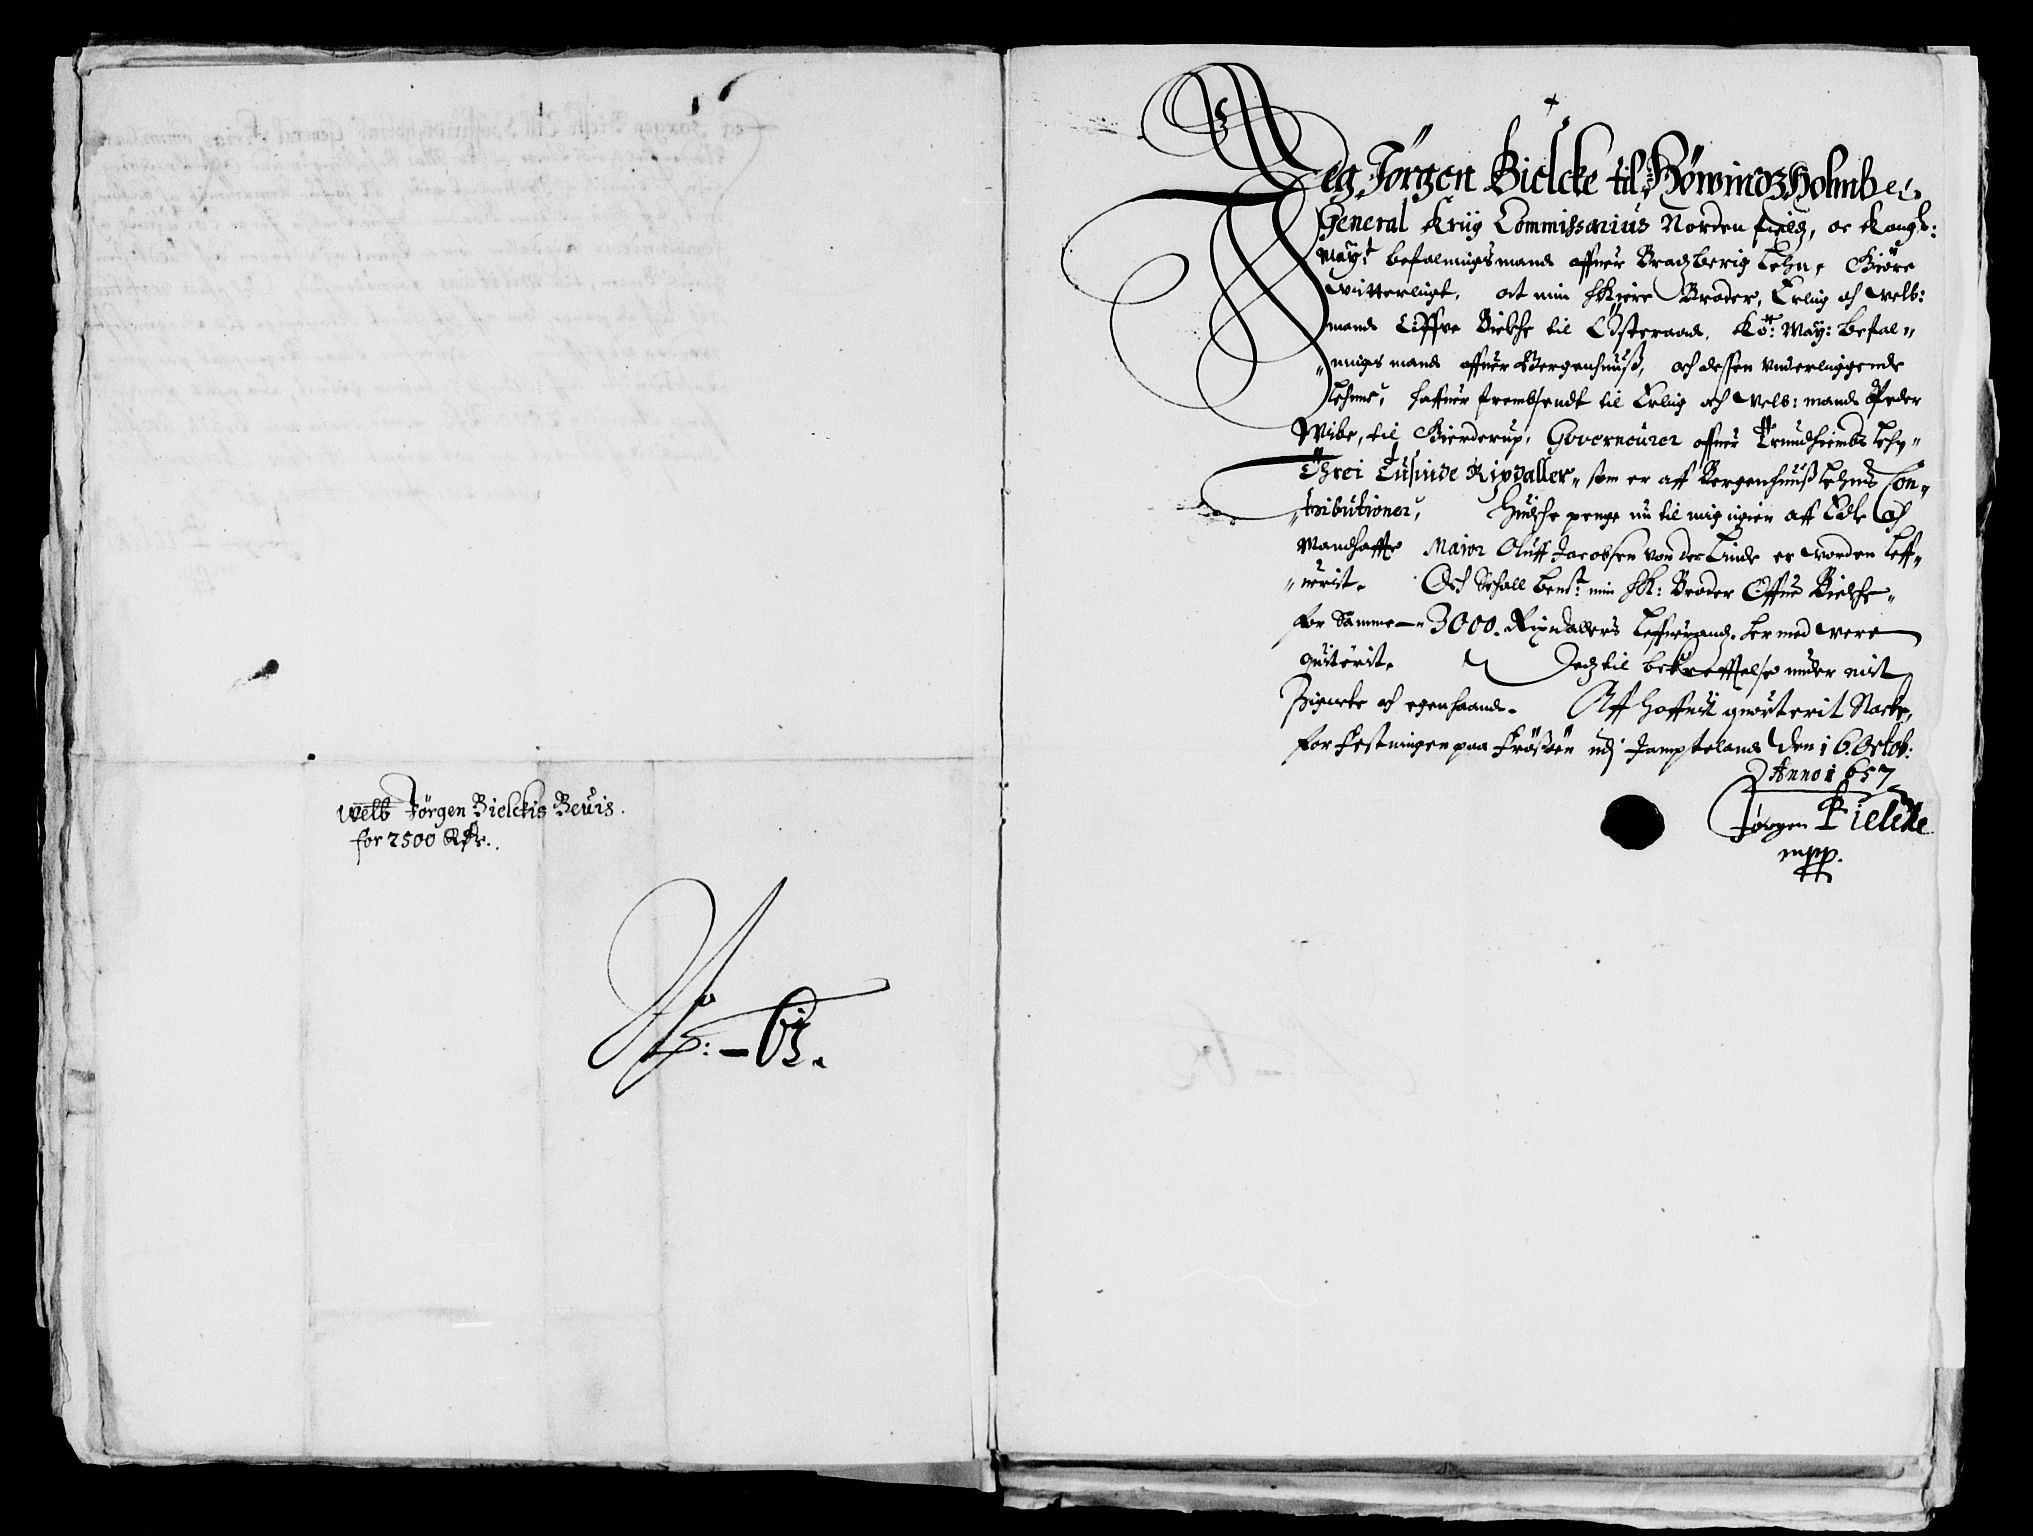 Welb Jørgen Bielckis Bevis.
for 2500 Rdr..
No: – 65.
Jeg Jørgen Bielcke til Høwindzholmb etc.
General Kriig Commissarius Norden fields, oc Kongl:
Mayt: befalningsmand offuer Bradzberig Lehn, Giøre
witterligt, at min Kiere Broder, Erlig och welb:
mand Offue Bielche til Østeraad, Ko: May: befal„
„nings mand offuer Bergenhuuss, och dessen underliggende
Lehne, haffuer frembsendt til Erlig och welb: mand Peder
Wibe, til Gierderup, Governeurer offuer Trundhiembs Lehn„
Threi Tusinde Rixdaller„ som er aff Bergenhuuss Lehns Con„
„tributioner, Huilche penge nu til mig igien aff Edle och
Mandhaffte Maior Oluff Jacobsen von der Linde er worden leff„
„uerit. Och Schall bemt: min K: Broder Offue Bielche„
for Samme – 3000. Rixdallers Leffuerands. her med were
quiterit. Dedz til bekrefftelse under mit
Zignete och egen haand. Aff Hoffuit quorterit Nacke,
for Festningen paa Frössöen udj Jampteland Den 16. Octob:
Anno 1657
Jørgen Bielcke
mpp.